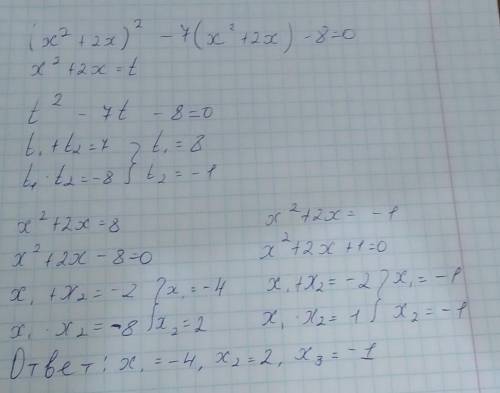 (x² + 2x)² - 7(x² + 2x) - 8 = 0
x² + 2x = t
t² - 7t - 8 = 0
t₁ + t₂ = 7 } t₁ = 8
t₁ · t₂ = -8 } t₂ = -1
x² + 2x = 8
x² + 2x - 8 = 0
x₁ + x₂ = -2 } x₁ = -4
x₁ · x₂ = -8 } x₂ = 2
x² + 2x = -1
x² + 2x + 1 = 0
x₁ + x₂ = -2 } x₁ = -1
x₁ · x₂ = 1 } x₂ = -1
Ответ: x₁ = -4, x₂ = 2, x₃ = -1